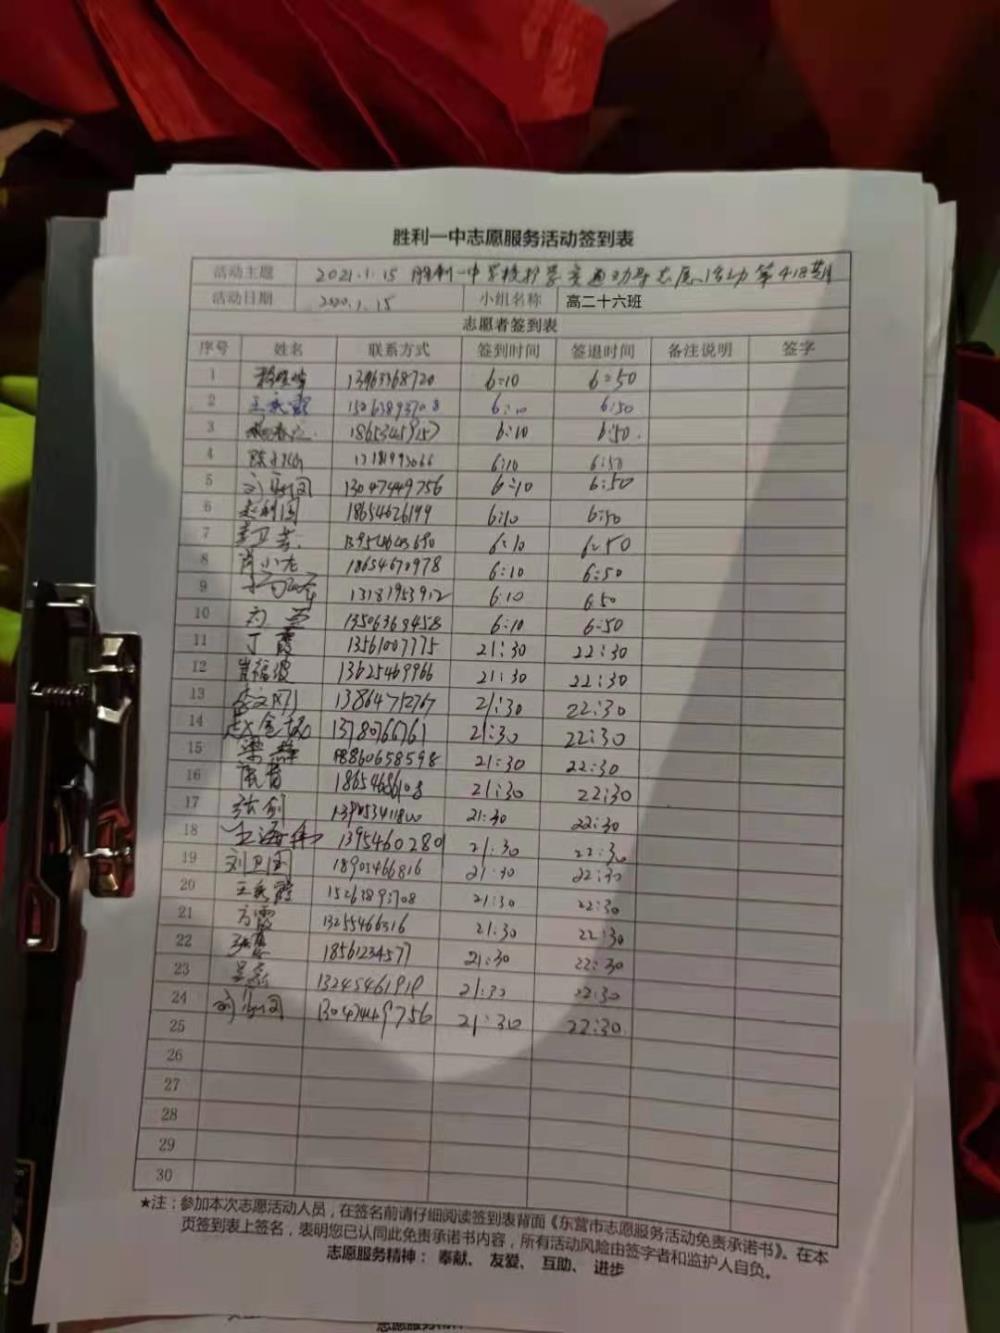 胜利一中志愿服务活动签到表
活动主题 2021.1.15 胜利一中学校护学交通劝导志愿活动第418期
活动日期 2020.1.15 小组名称 高二十六班
志愿者签到表
序号 姓名 联系方式 签到时间 签退时间 备注说明 签字
1 6:10 6:50
2 王秀霞 15263893708 6:10 6:50
3 6:10 6:50.
4 6:10 6:50
5 13047449756 6:10 6:50
6 赵利国 18654626199 6:10 6:50
7 6:10 6:50
8 肖小龙 18654670978 6:10 6:50
9 13181953912 6:10 6:50
10 13506369458 6:10 6:50
11 丁霞 13561007775 21:30 22:30
12 肖福波 13625469966 21:30 22:30
13 李文刚 13864712767 21:30 22:30
14 13780766761 21:30 22:30
15 18860658598 21:30 22:30
16 18654686108 21:30 22:30
17 张剑 21:30 22:30
18 王海伟 13954602801 21:30 22:30
19 刘卫国 18905466816 21:30 22:30
20 王秀霞 15263893708 21:30 22:30
21 方霞 13255466316 21:30 22:30
22 18561234577 21:30 22:30
23 13245461919 21:30 22:30
24 13047449756 21:30 22:30
25
26
27
28
29
30
★注：参加本次志愿活动人员，在签名前请仔细阅读签到表背面《东营市志愿服务活动免责承诺书》。在本
页签到表上签名，表明您已认同此免责承诺书内容，所有活动风险由签字者和监护人自负。
志愿服务精神： 奉献、 友爱、 互助、 进步